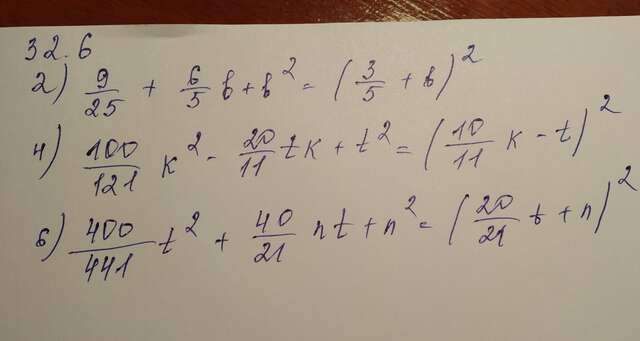 32.6
2) 9/25 + 6/5 b + b² = (3/5 + b)²
4) 100/121 k² - 20/11 tk + t² = (10/11 k - t)²
6) 400/441 t² + 40/21 nt + n² = (20/21 t + n)²